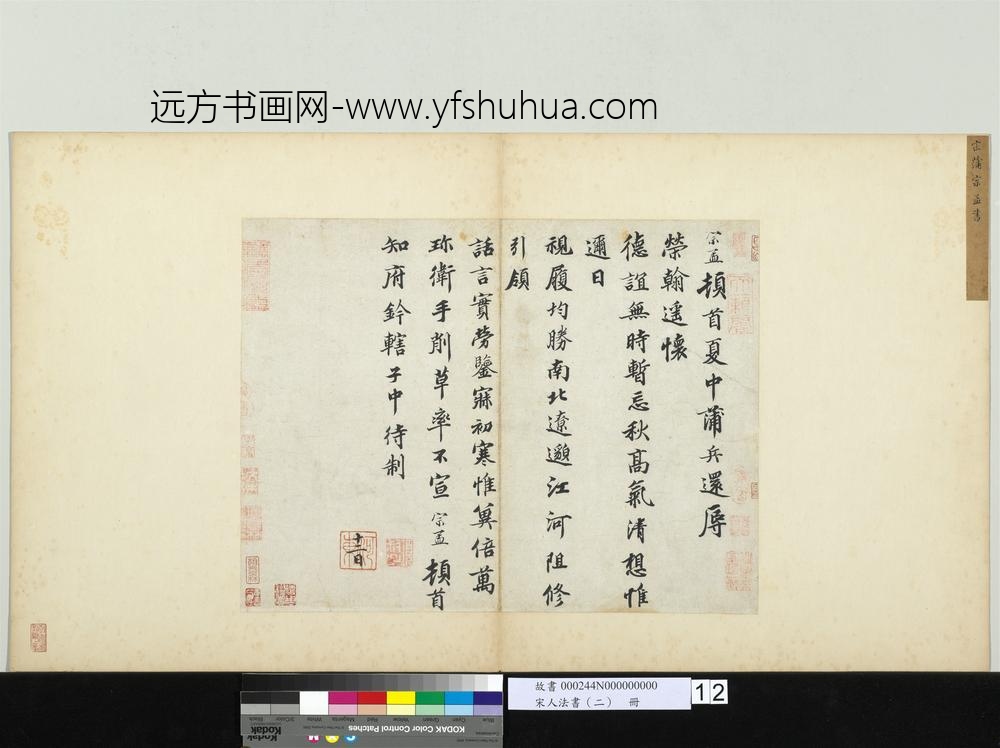 远方书画网-www.yfshuhua.com
宋蒲宗孟書
宗孟頓首夏中蒲兵還辱
榮翰遥懷
德誼無時暫忘秋高氣清想惟
邇日
視履均勝南北遼邈江河阻修
引領
話言實勞鑒寐初寒惟冀倍萬
珎衛手削草率不宣宗孟頓首
知府鈐轄子中待制
十二日
故書 000244N000000000
宋人法書（二） 冊
12
KODAK Color Control Patches
Kodak
Blue
Cyan
Green
Yellow
Red
Magenta
White
3/Color
Black